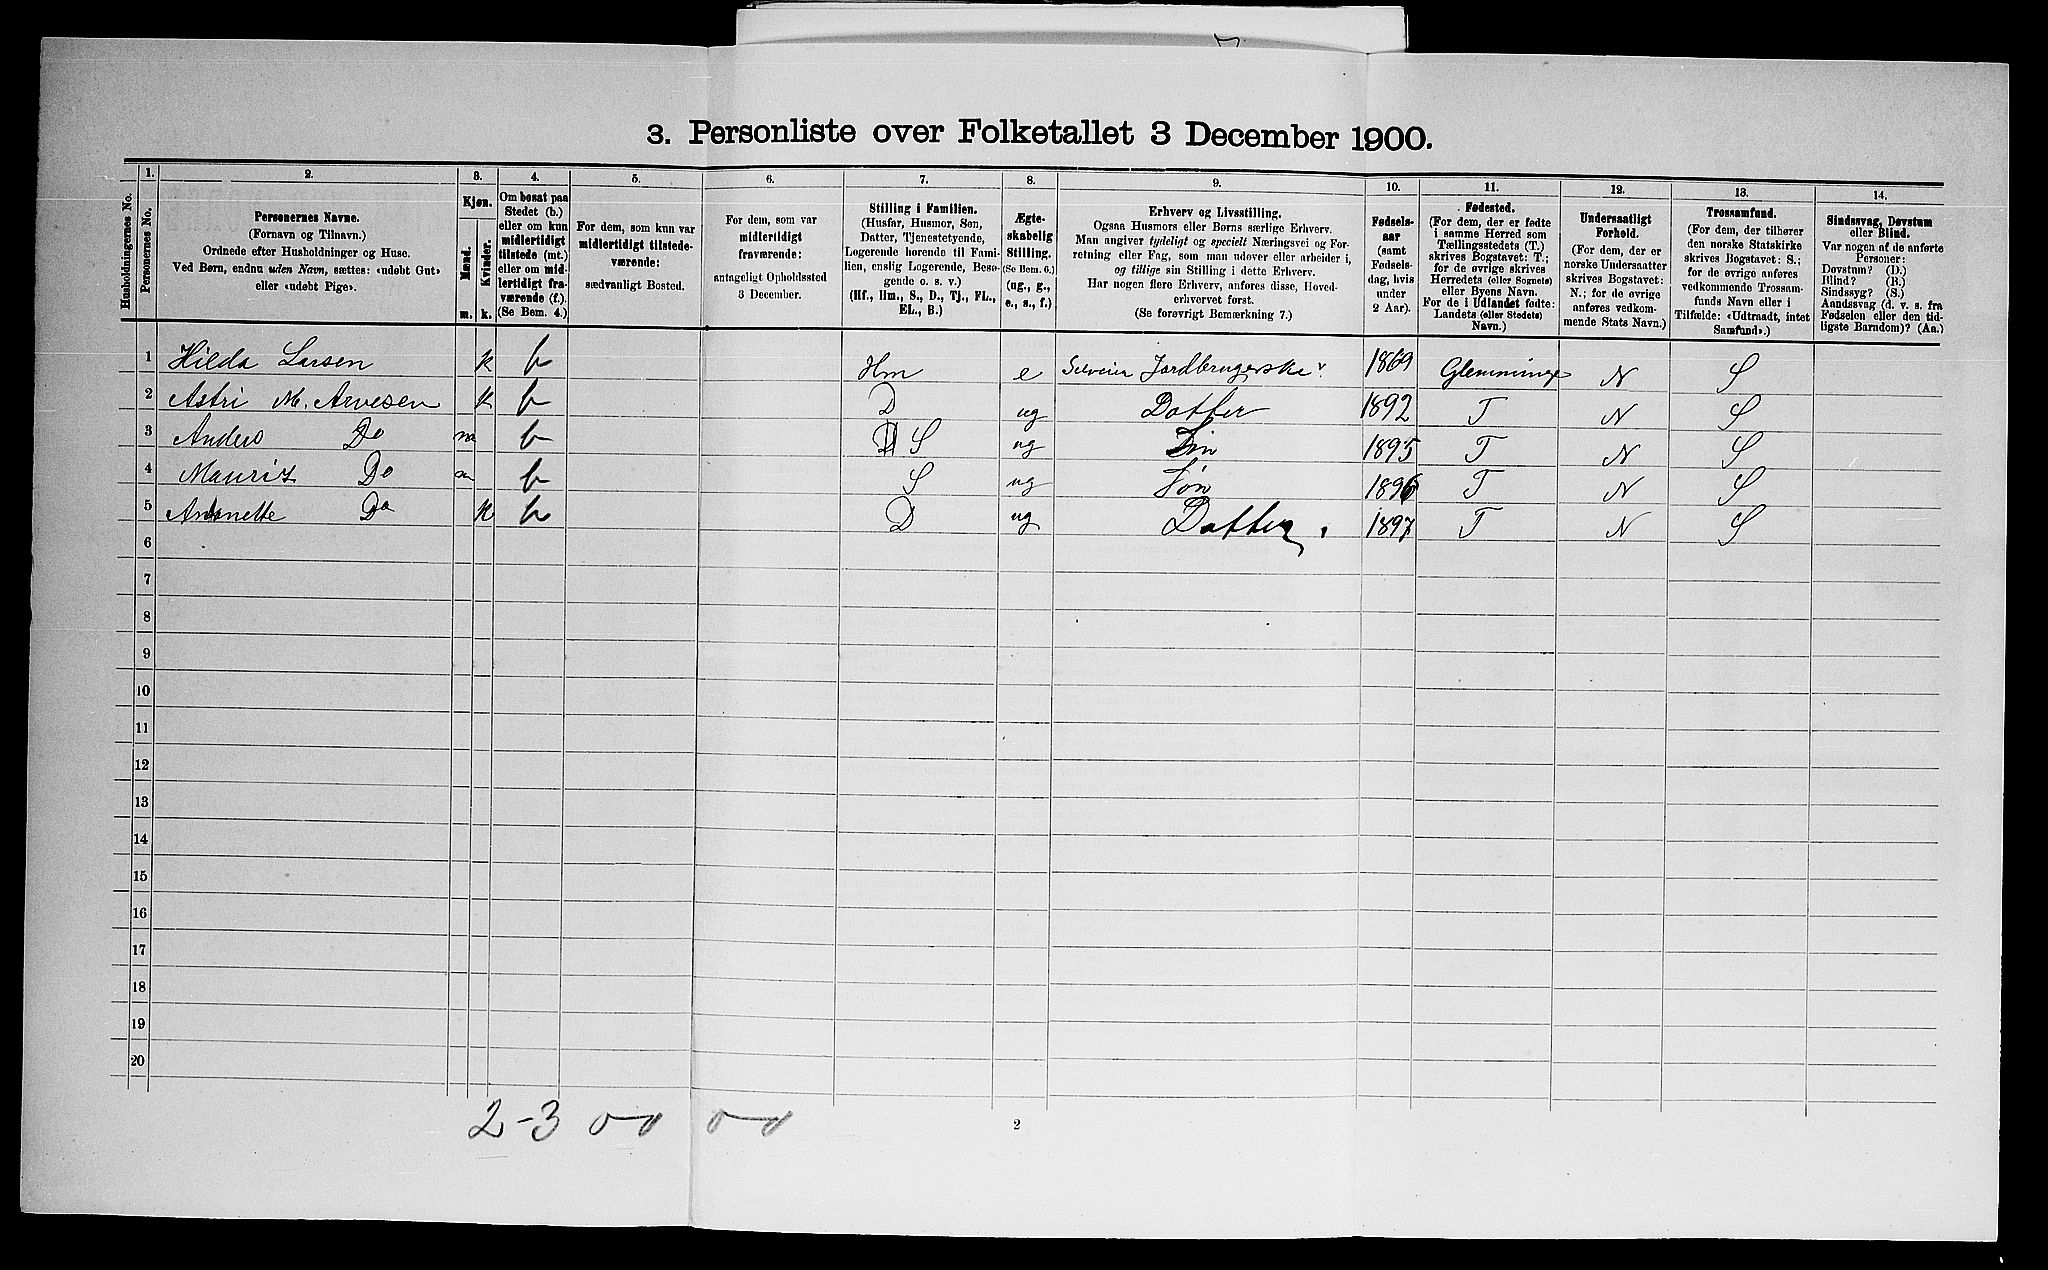 3. Personliste over Folketallet 3 December 1900.
1. 2. 3. 4. 5. 6. 7. 8. 9. 10. 11. 12. 13. 14.
Husholdningernes No.
Personernes No.
Personernes Navne.
(Fornavn og Tilnavn.)
Ordnede efter Husholdninger og Huse.
Ved Børn, endnu uden Navn, sættes: «udøbt Gut»
eller «udøbt Pige».
Kjøn.
Mænd.
Kvinder.
m. k.
Om bosat paa
Stedet (b.)
eller om kun
midlertidigt
tilstede (mt.)
eller om mid-
lertidigt fra-
værende (f.).
(Se Bem. 4.)
For dem, som kun var
midlertidigt tilstede-
værende:
sædvanligt Bosted.
For dem, som var
midlertidigt
fraværende:
antageligt Opholdssted
3 December.
Stilling i Familien.
(Husfar, Husmor, Søn,
Datter, Tjenestetyende,
Logerende hørende til Fami-
lien, enslig Logerende, Besø-
gende o. s. v.)
(Hf., Hm., S., D., Tj., FL.,
EL., B.)
Ægte-
skabelig
Stilling.
(Se Bem. 6.)
(ug., g.,
e., s., f.)
Erhverv og Livsstilling.
Ogsaa Husmors eller Børns særlige Erhverv.
Man angiver tydeligt og specielt Næringsvei og For-
retning eller Fag, som man udøver eller arbeider i,
og tillige sin Stilling i dette Erhverv.
Har nogen flere Erhverv, anføres disse, Hoved-
erhvervet først.
(Se forøvrigt Bemærkning 7.)
Fødsels-
aar
(samt
Fødsels-
dag, hvis
under
2 Aar).
Fødested.
(For dem, der er fødte
i samme Herred som
Tællingsstedets (T.)
skrives Bogstavet: T.;
for de øvrige skrives
Herredets (eller Sognets)
eller Byens Navn.
For de i Udlandet fødte:
Landets (eller Stedets)
Navn.)
Undersaatligt
Forhold.
(For dem, der er
norske Undersaatter
skrives Bogstavet:
N.; for de øvrige
anføres vedkom-
mende Stats Navn.)
Trossamfund.
(For dem, der tilhører
den norske Statskirke
skrives Bogstavet: S.;
for de øvrige anføres
vedkommende Trossam-
funds Navn eller i
Tilfælde: «Udtraadt, intet
Samfund».)
Sindssvag, Døvstum
eller Blind.
Var nogen af de anførte
Personer:
Døvstum? (D.)
Blind? (B.)
Sindssyg? (S.)
Aandssvag (d. v. s. fra
Fødselen eller den tid-
ligste Barndom)? (Aa.)
1 Hilda Larsen k b Hm e Selveier Jordbrugerske 1869 Glemminge N S
2 Astri M. Arvesen k b D ug Datter 1892 T N S
3 Anders Do m b S ug Søn 1895 T N S
4 Mauritz Do m b S ug Søn 1896 T N S
5 Antonette Do k b D ug Datter 1897 T N S
6
7
8
9
10
11
12
13
14
15
16
17
18
19
20
2-3 0-0 0-0
2